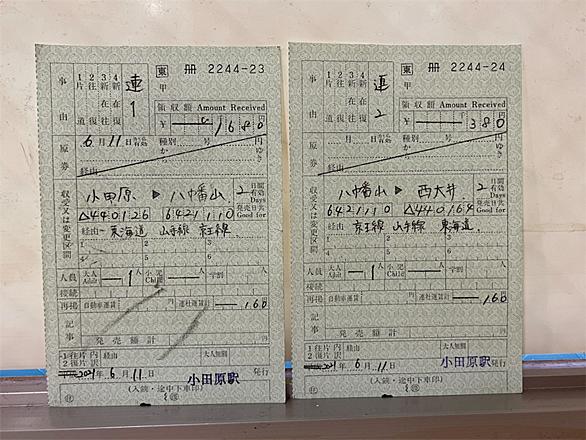 東 冊 2244-23
事由
1片道
2往復
3新在往
4新在復
連1
甲
領収額 Amount Received
¥ 1680 円
原券
6月11日
から有効
種別 号 円
から ゆき
経由
収受又は変更区間
小田原 ▶ 八幡山
2日間有効
Days
発売日共
Good for
△440126 6421110
経由 東海道 山手線 京王線
1 2 3
4 5 6
人員 大人 Adult 1人 小児 Child 人 学割
接続
再接 自動車運賃 円 連社運賃計 160
記事
発売額計 円
1往片 内
2復片 訳
経由 大人無割 円
2021年6月11日 小田原駅 発行
(入鋏・途中下車印)
東 冊 2244-24
事由
1片道
2往復
3新在往
4新在復
連2
甲
領収額 Amount Received
¥ 380 円
原券
月 日
から有効
種別 号 円
から ゆき
経由
収受又は変更区間
八幡山 ▶ 西大井
2日間有効
Days
発売日共
Good for
6421110 △440164
経由 京王線 山手線 東海道
1 2 3
4 5 6
人員 大人 Adult 1人 小児 Child 人 学割
接続
再接 自動車運賃 円 連社運賃計 160
記事
発売額計 円
1往片 内
2復片 訳
経由 大人無割 円
2021年6月11日 小田原駅 発行
(入鋏・途中下車印)